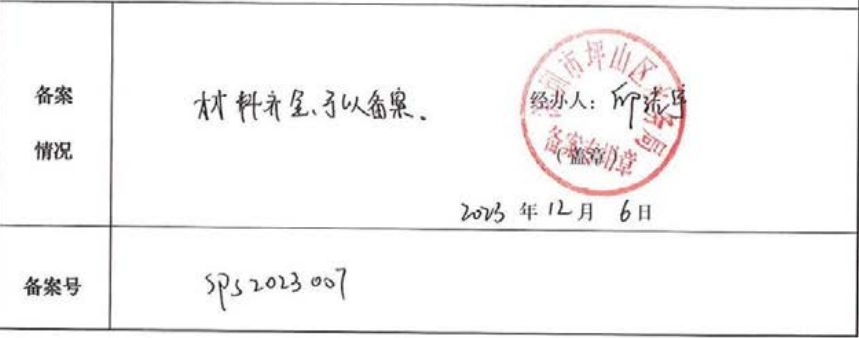 备案
情况
材料齐全、予以备案.
经办人：
(盖章)
市坪山区
局
备案专用章
2023 年 12 月 6 日
备案号
SPS2023007